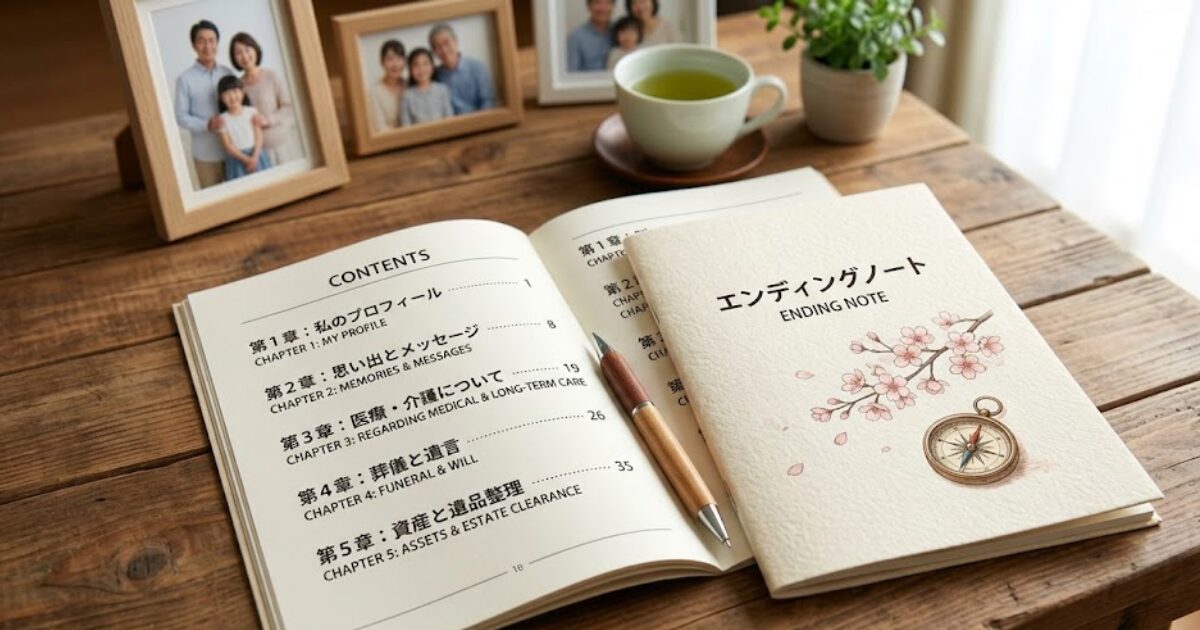 CONTENTS
第1章：私のプロフィール 1
CHAPTER 1: MY PROFILE
第2章：思い出とメッセージ 8
CHAPTER 2: MEMORIES & MESSAGES
第3章：医療・介護について 19
CHAPTER 3: REGARDING MEDICAL & LONG-TERM CARE
第4章：葬儀と遺言 26
CHAPTER 4: FUNERAL & WILL
第5章：資産と遺品整理 35
CHAPTER 5: ASSETS & ESTATE CLEARANCE
第1章
第2
エンディングノート
ENDING NOTE